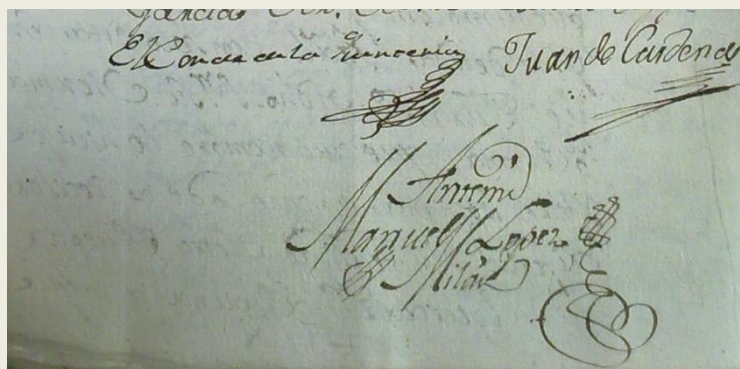 El Conde de la Quinteria Juan de Cardenas
Antemi
Manuel Lopez
Milan